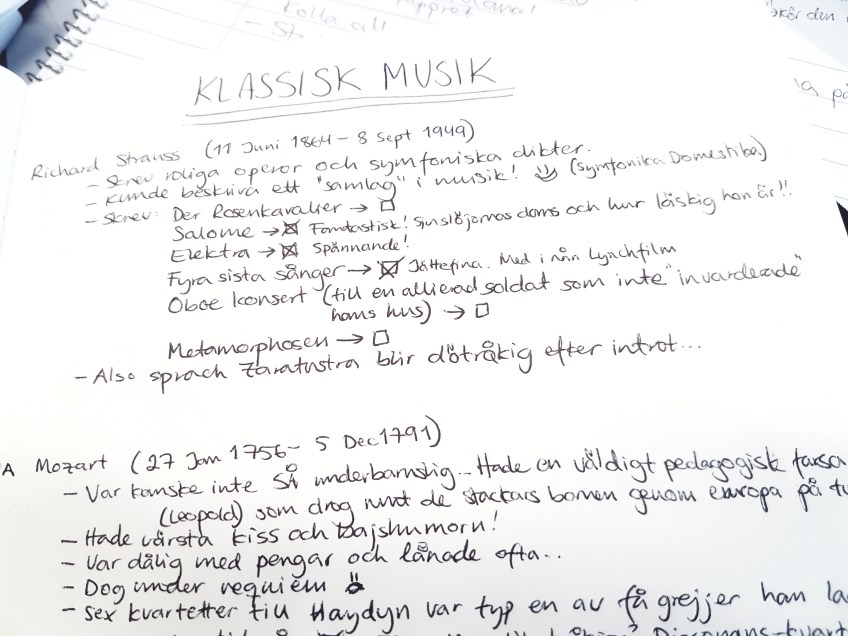 Kolla all
- St
skör den
la på
KLASSISK MUSIK
Richard Strauss (11 Juni 1864 - 8 Sept 1949)
- Skrev roliga operor och symfoniska dikter.
- Kunde beskriva ett "samlag" i musik! (Symfonika Domestika)
- Skrev: Der Rosenkavalier → □
Salome → ☒ Fantastisk! Sjuslöjornas dans och hur läskig hon är!!
Elektra → ☒ Spännande!
Fyra sista sånger → ☒ Jättefina. Med i nån Lynchfilm
Oboe konsert (till en allierad soldat som inte "invarderade"
hans hus) → □
Metamorphosen → □
- Also sprach Zaratustra blir dötråkig efter introt...
A Mozart (27 Jan 1756 - 5 Dec 1791)
- Var kanske inte SÅ underbarnslig... Hade en väldigt pedagogisk farsa
(Leopold) som drog runt de stackars barnen genom europa på
- Hade värsta kiss och bajshumorn!
- Var dålig med pengar och lånade ofta..
- Dog under requiem
- Sex kvartetter till Haydyn var typ en av få grejjer han la